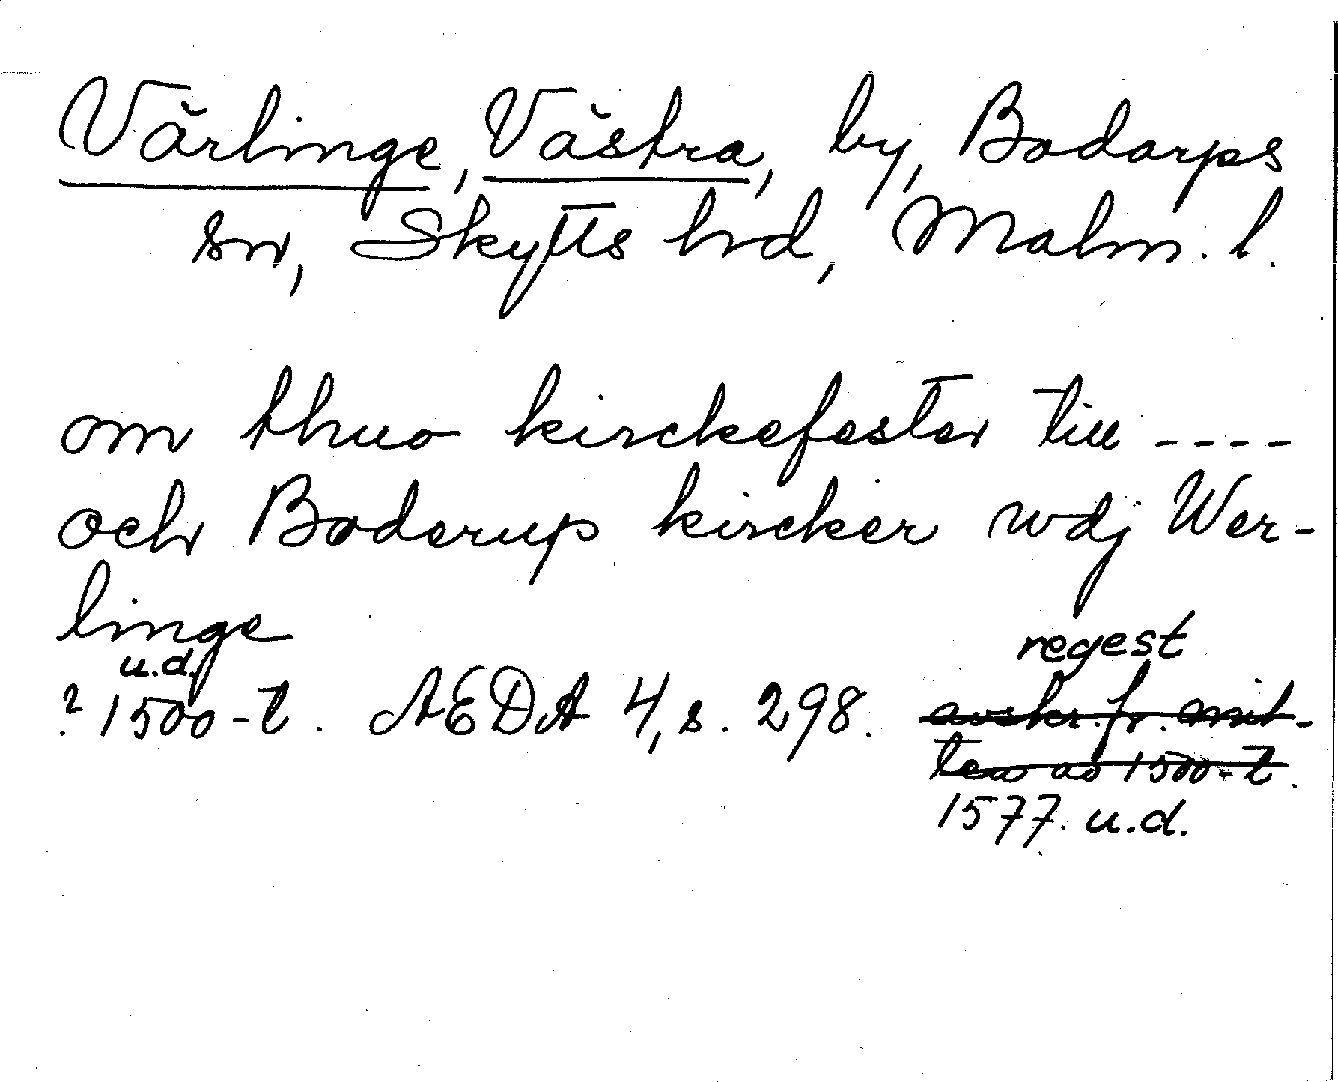 Värlinge, Västra, by, Bodarps
sn, Skytts hrd, Malm. l.
om thuo kirckefester till ----
och Boderup kircker wdj Wer-
linge
u.d.
? 1500-t. AEDA 4, s. 298. regest
avskr. fr. mit-
ten av 1500-t.
1577. u.d.